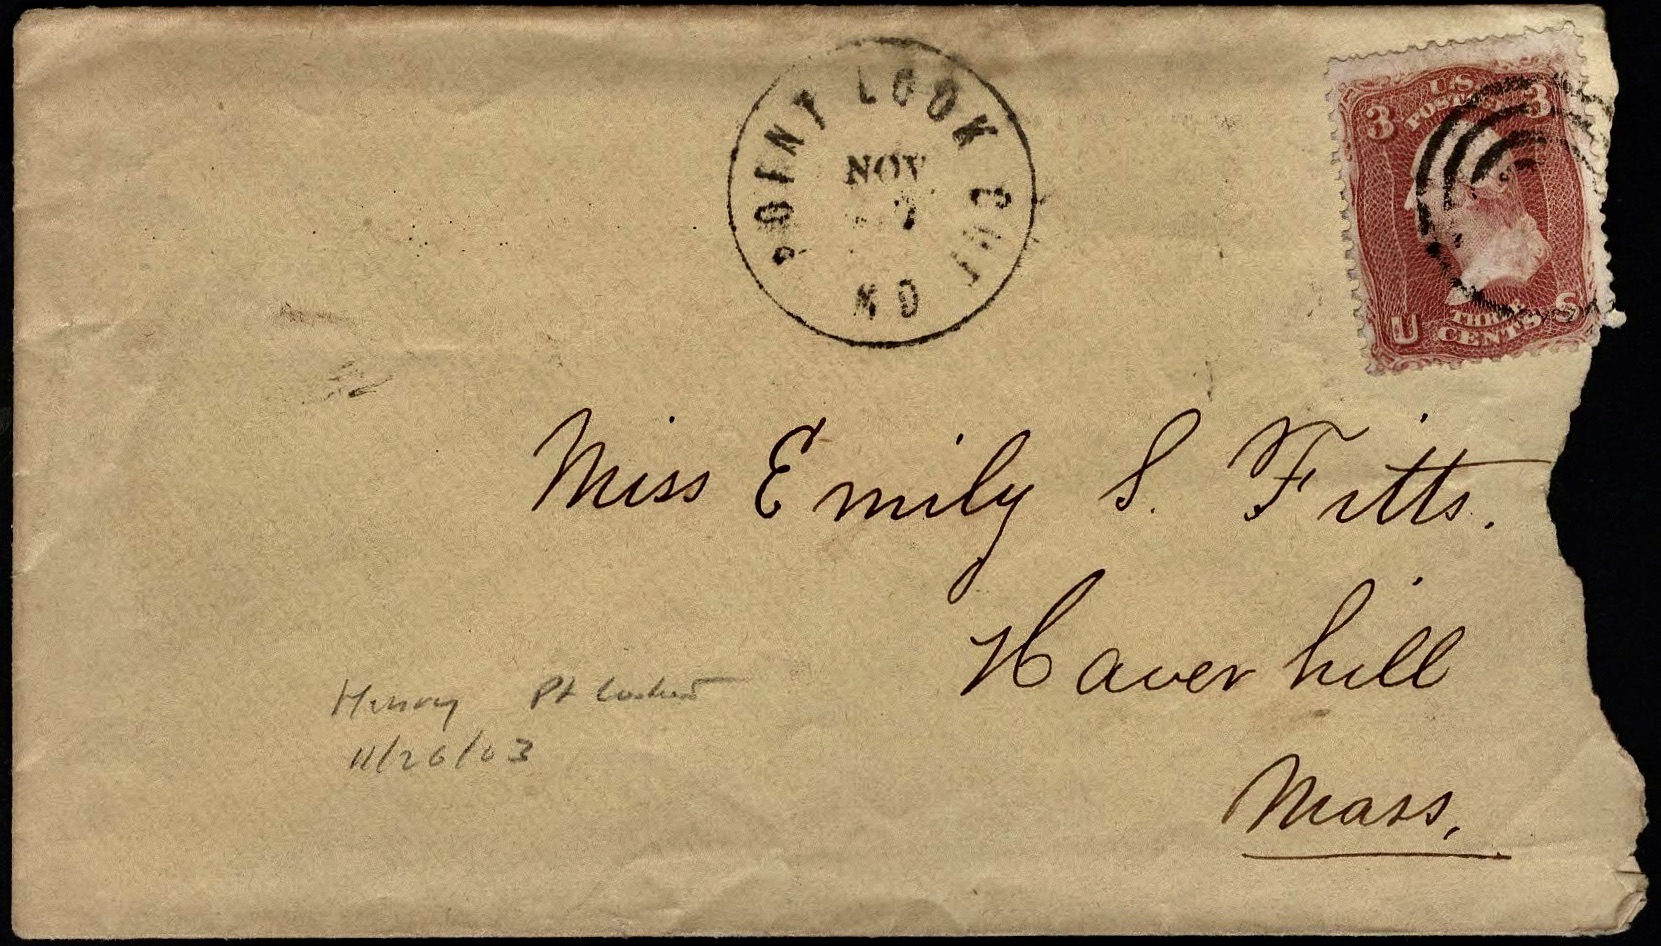 POINT LOOK OUT
NOV
7
MD
3 U.S. POSTAGE 3
U THREE CENTS S
Miss Emily S. Fitts.
Haverhill
Mass.
Henry Pt Lookout
11/26/63